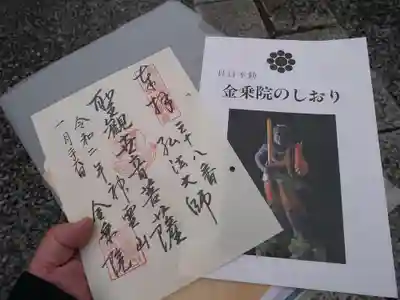 奉拝
三十八番
弘法大師
聖観世音菩薩
神霊山
令和二年
金乗院
目白不動
金乗院のしおり